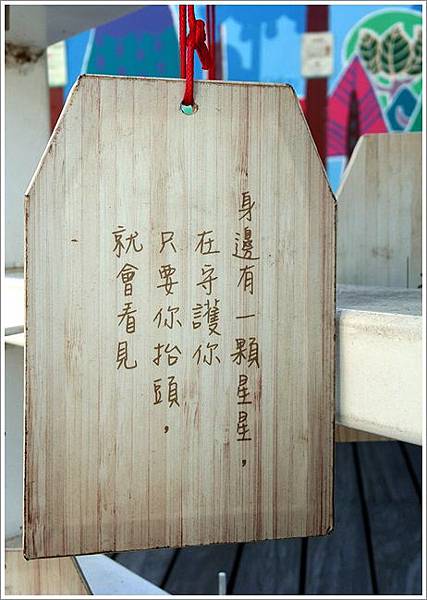 身邊有一顆星星，
在守護你
只要你抬頭，
就會看見